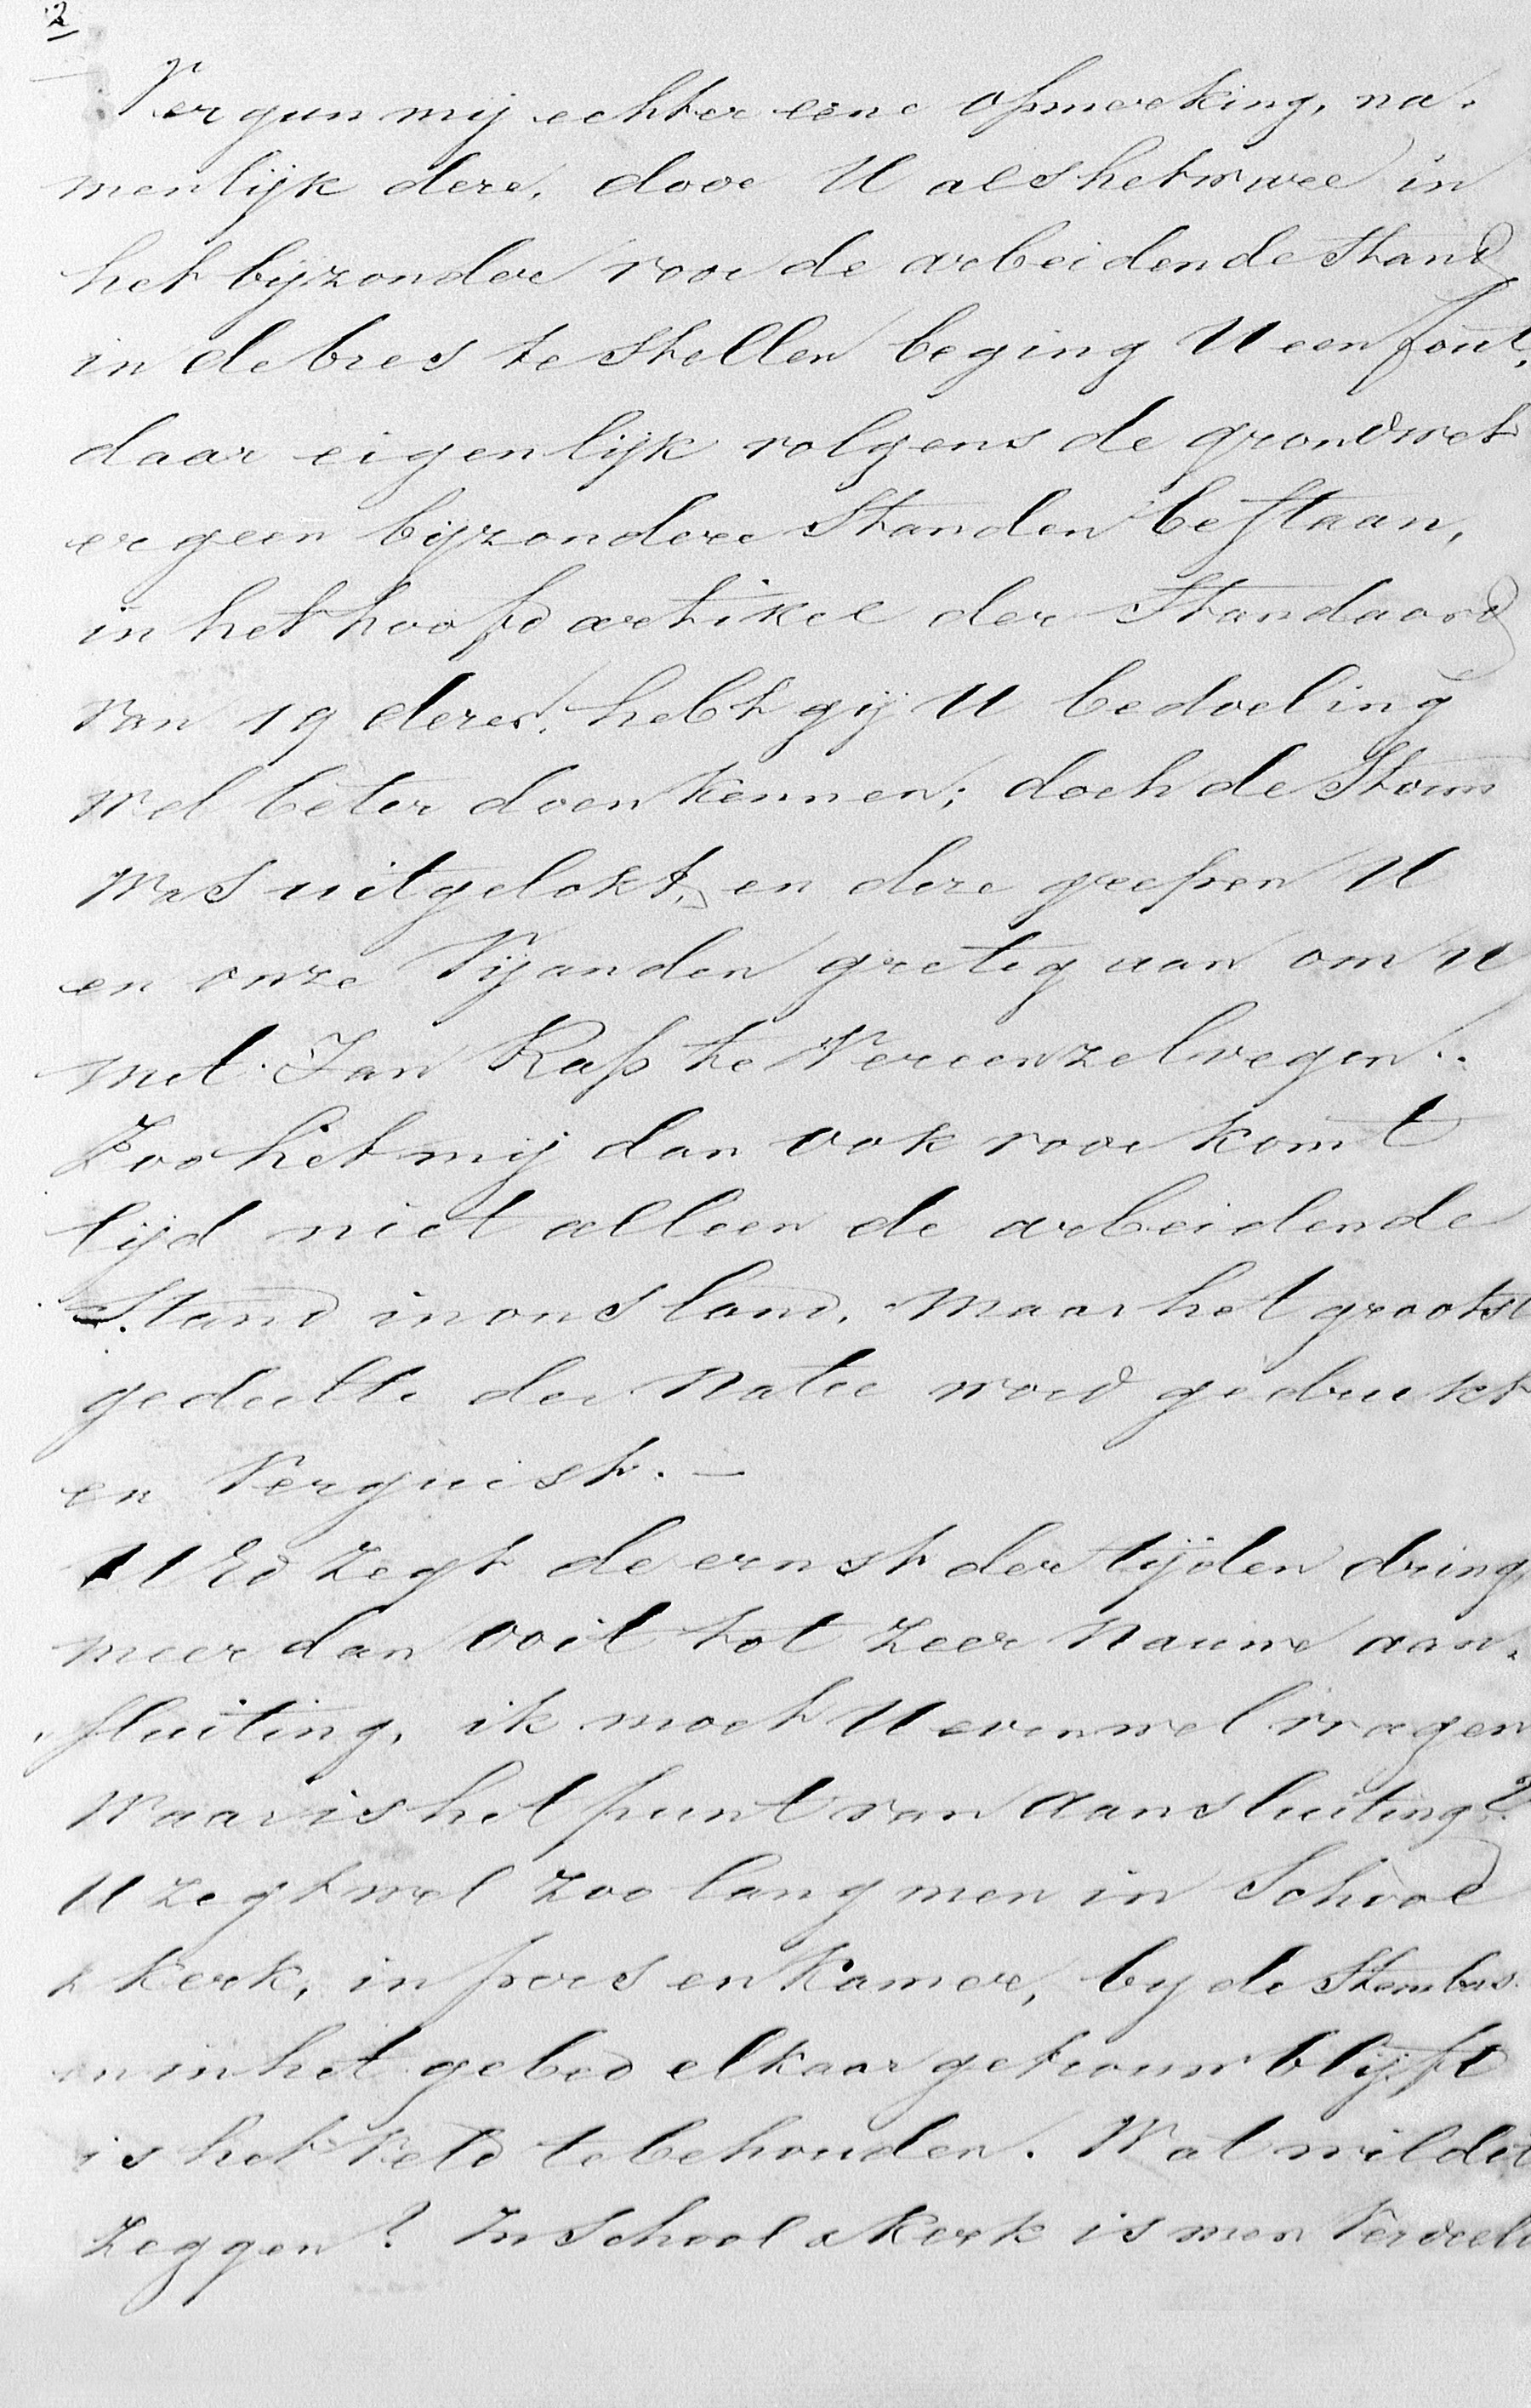 2
Vergun mij echter eene opmerking, na-
menlijk deze, door U als het ware in
het bijzonder voor de arbeidende Stand
in de bres te Stellen beging U een fout,
daar eigenlijk volgens de grondwet
er geen bijzondere Standen bestaan,
in het hoofd artikel der Standaard
van 19 dezer, hebt gij U bedoeling
wel beter doen kennen; doch de Storm
was uitgelokt, en deze grepen U
en onze Vijanden gretig aan om U
met Jan Rap te Vereenzelvegen.
Zoo het mij dan ook voor komt
lijd niet alleen de arbeidende
Stand in ons land, maar het grootst
gedeelte der Natie word gedrukt
en Verguist. —
UEd zegt de ernst der tijden dring
meer dan ooit tot zeer nauwe aan-
sluiting, ik mocht U evenwel vragen
Waar is het punt van aansluiting?
U zegt wel zoo lang men in School
& kerk, in pers en Kamer, by de Stembus
en in het gebed elkaar getrouw blijft
is het Veld te behouden. Wat wil dit
zeggen? In School & Kerk is men Verdeeld